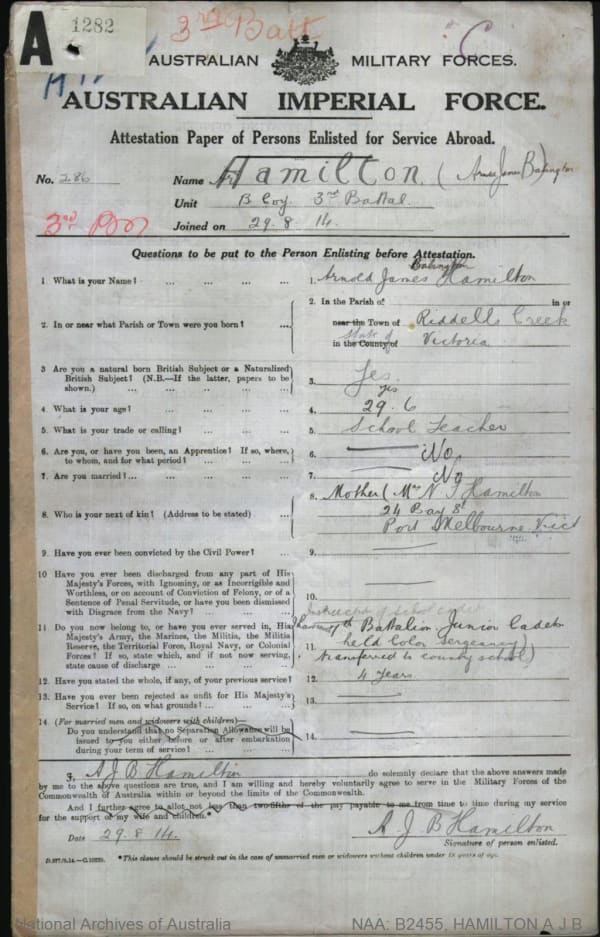 A
1282
3rd Batt
C
AUSTRALIAN MILITARY FORCES.
AUSTRALIAN IMPERIAL FORCE.
Attestation Paper of Persons Enlisted for Service Abroad.
No. 286 Name Hamilton. ( James Babington
Unit B Coy. 3rd Battal.
3rd Joined on 29. 8 14.
Questions to be put to the Person Enlisting before Attestation.
1 What is your Name? ... ... ... ... 1. Arnold James Babington Hamilton
2. In or near what Parish or Town were you born? ... 2. In the Parish of in or
near the Town of Riddells Creek
in the County of State of Victoria
3 Are you a natural born British Subject or a Naturalized
British Subject? (N.B.—If the latter, papers to be
shown.) ... ... ... ... ... 3. Yes
yes
4. What is your age? ... ... ... ... 4. 29. 6
5. What is your trade or calling? ... ... ... 5. School Teacher
6. Are you, or have you been, an Apprentice? If so, where,
to whom, and for what period? ... ... ... 6. No
7. Are you married? ... ... ... ... ... 7. No
8. Who is your next of kin? (Address to be stated) ... 8. Mother (Mrs N J Hamilton
24 Bay S
Port Melbourne Vict
9. Have you ever been convicted by the Civil Power? ... 9.
10 Have you ever been discharged from any part of His
Majesty's Forces, with Ignominy, or as Incorrigible and
Worthless, or on account of Conviction of Felony, or of a
Sentence of Penal Servitude, or have you been dismissed
with Disgrace from the Navy? ... ... ... 10.
Instructor of School cadets
11 Do you now belong to, or have you ever served in, His
Majesty's Army, the Marines, the Militia, the Militia
Reserve, the Territorial Force, Royal Navy, or Colonial
Forces? If so, state which, and if not now serving,
state cause of discharge ... ... ... ... 11 Battalion Junior Cadets
held Color Sergeancy)
transferred to country school)
12. Have you stated the whole, if any, of your previous service? 12. 4 years
13. Have you ever been rejected as unfit for His Majesty's
Service? If so, on what grounds? ... ... ... 13.
14. (For married men and widowers with children)—
Do you understand that no Separation Allowance will be
issued to you either before or after embarkation
during your term of service? ... ... ... 14.
I, A J B Hamilton do solemnly declare that the above answers made
by me to the above questions are true, and I am willing and hereby voluntarily agree to serve in the Military Forces of the
Commonwealth of Australia within or beyond the limits of the Commonwealth.
And I further agree to allot not less than two-fifths of the pay payable to me from time to time during my service
for the support of my wife and children.*
Date 29. 8 14. A. J B Hamilton
Signature of person enlisted.
*This clause should be struck out in the case of unmarried men or widowers without children under 18 years of age.
National Archives of Australia NAA: B2455, HAMILTON A J B